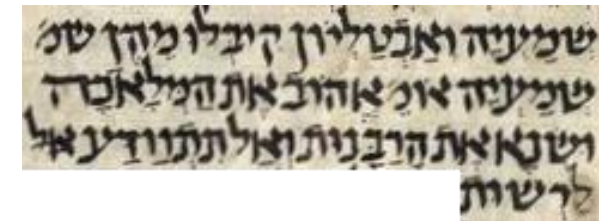 שמעיה ואבטליון קיבלו מהן שמ
שמעיה אומ אהוב את המלאכה
ושנא את הרבנות ואל תתוודע אל
לרשות